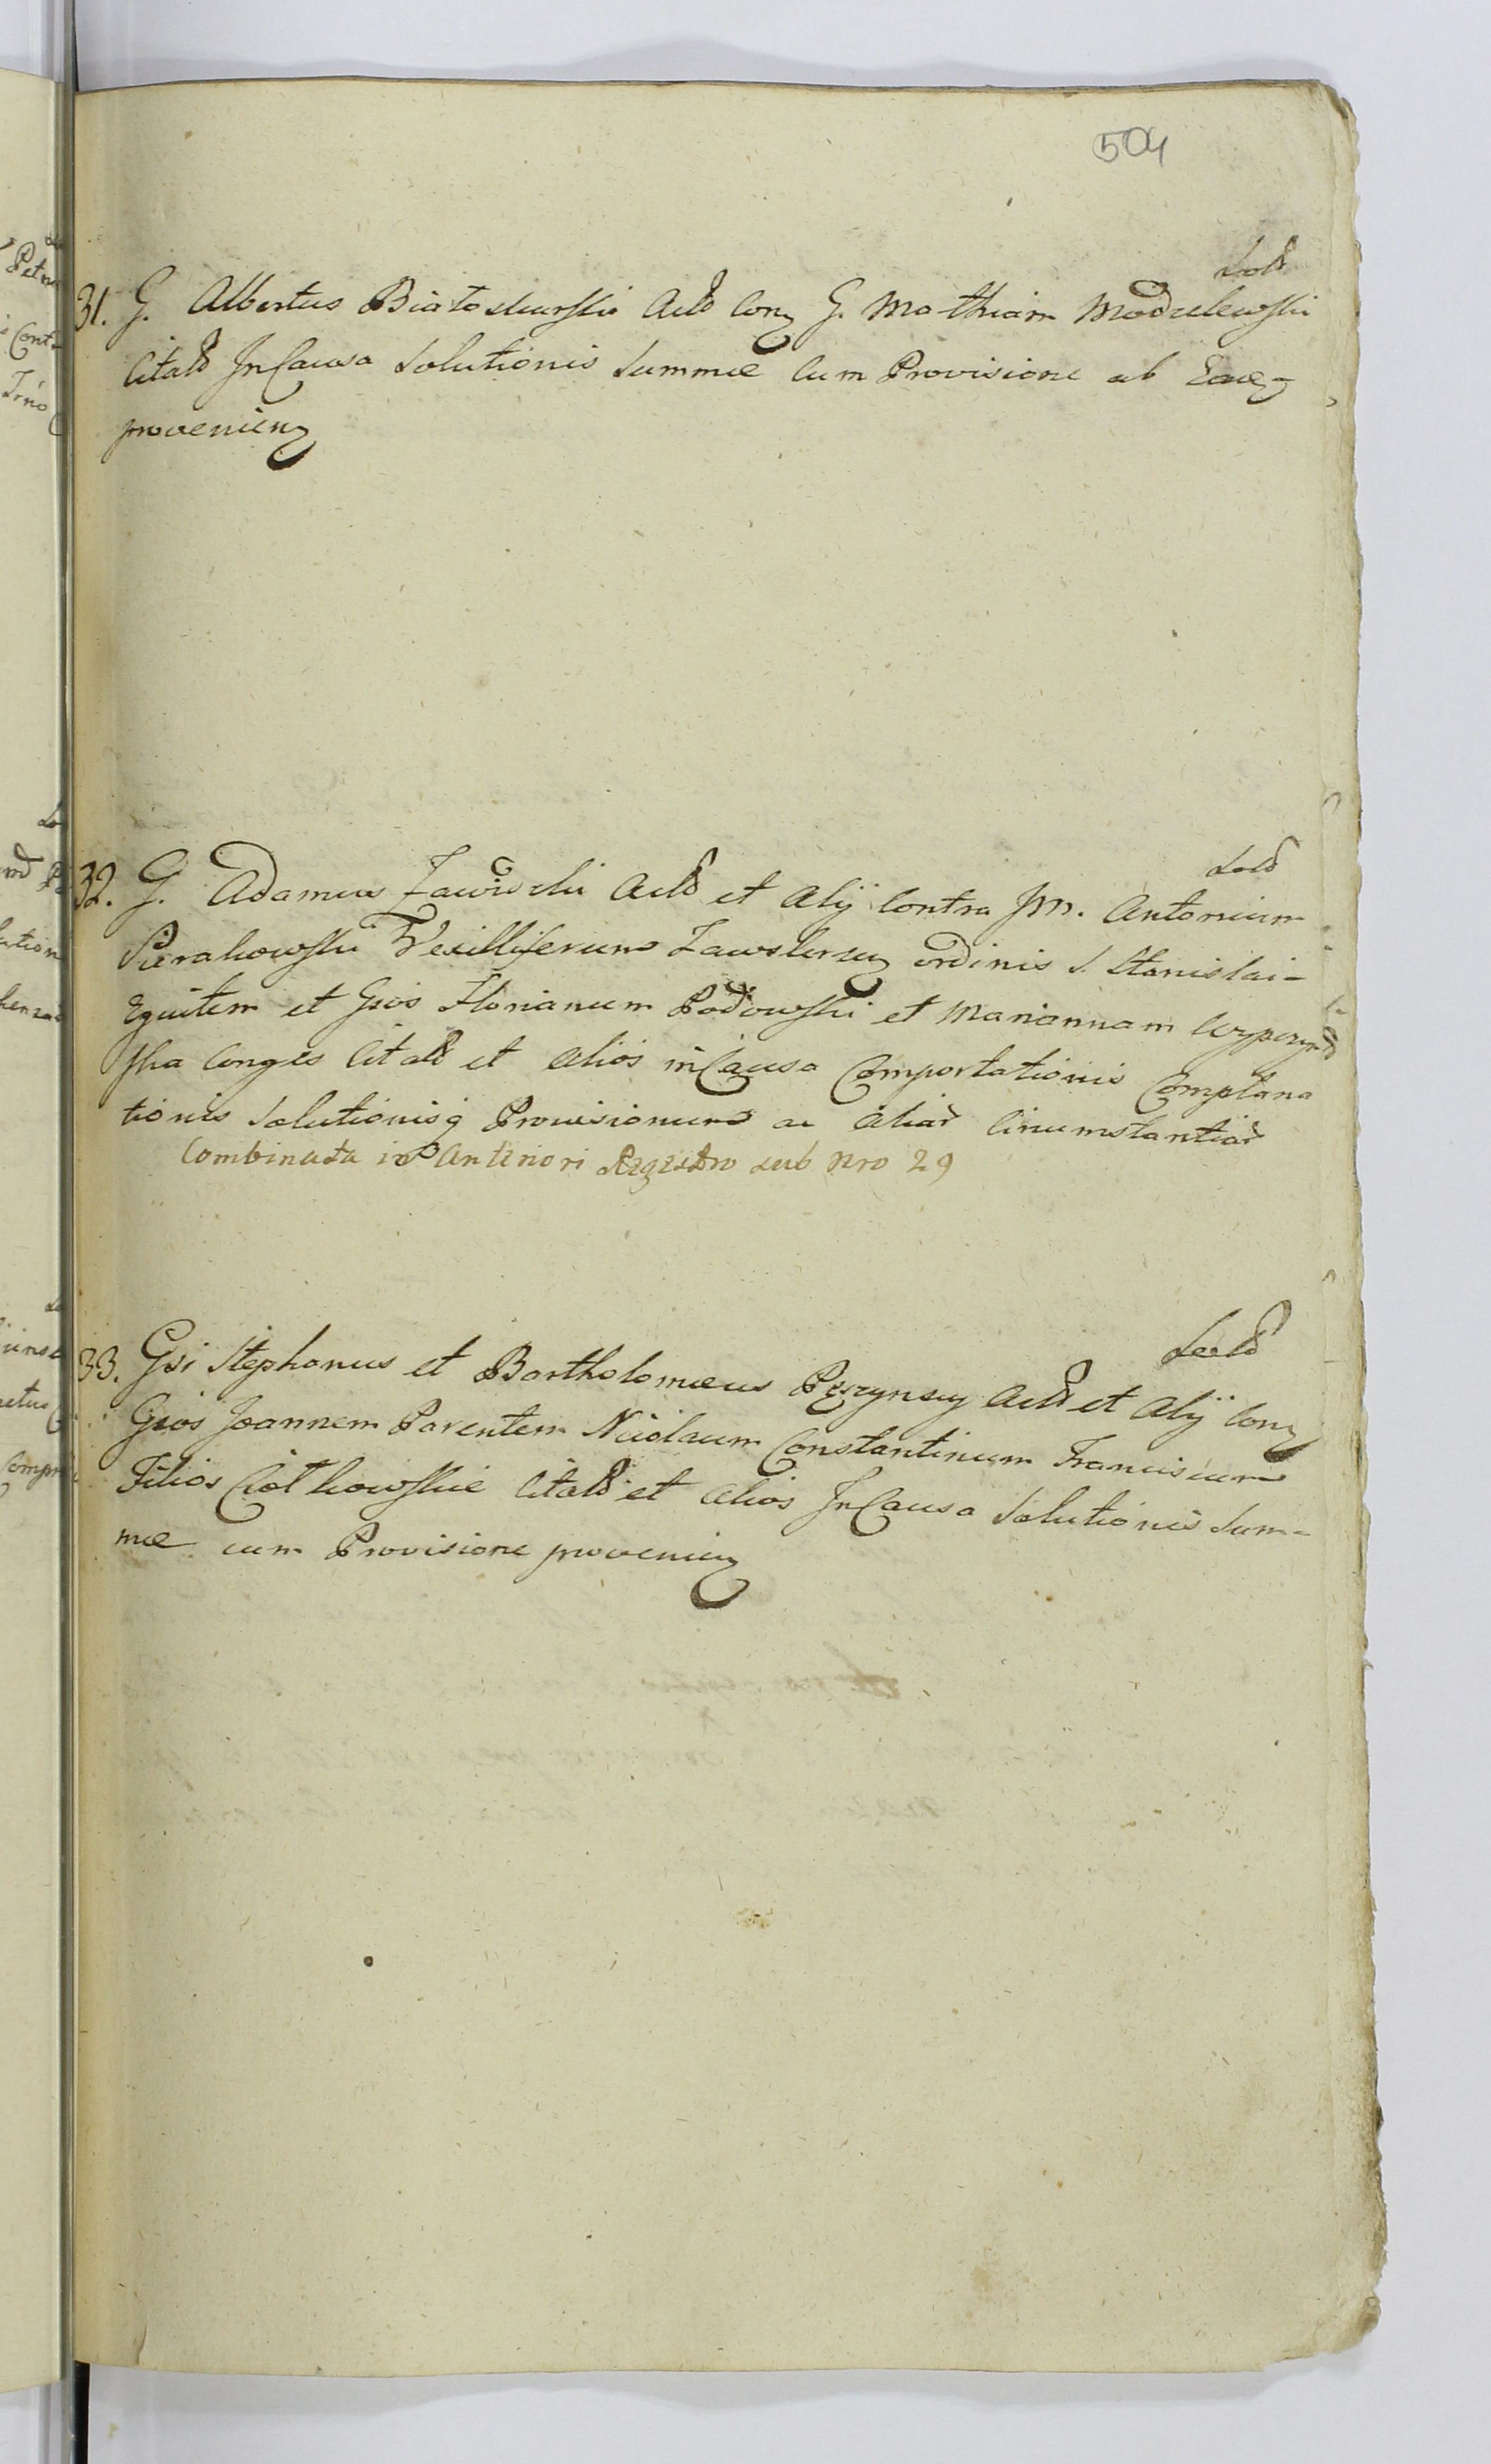 504
Sold
31. G. Albertus Białoskurski Actd Con G. Mathiam Modzelewski
Citatd In Causa Solutionis Summæ Cum Provisione ab Eaq
provenien
Sold
32. G. Adamus Zawiszki Actd et Alij Contra Jm. Antonium
Sierakowski Vexilliferum Zawskrzen ordinis S. Stanislai
Equitem et Gsos Florianum Podowski et Mariannam
ska Conges Citatd et Alios in Causa Comportationis Complana
tionis Solutionisq Provisionum ac Aliar Circumstantiar
Combinata in Anteriori Regestro sub Nro 29
Sold
33. Gsi Stephanus et Bartholomæus Actd et Alij Con
Gsos Joannem Parentem Nicolaum Constantinum Franciscum
Filios Ciołkowskie Citatd et Alios In Causa Solutionis Sum-
mæ cum Provisione provenien